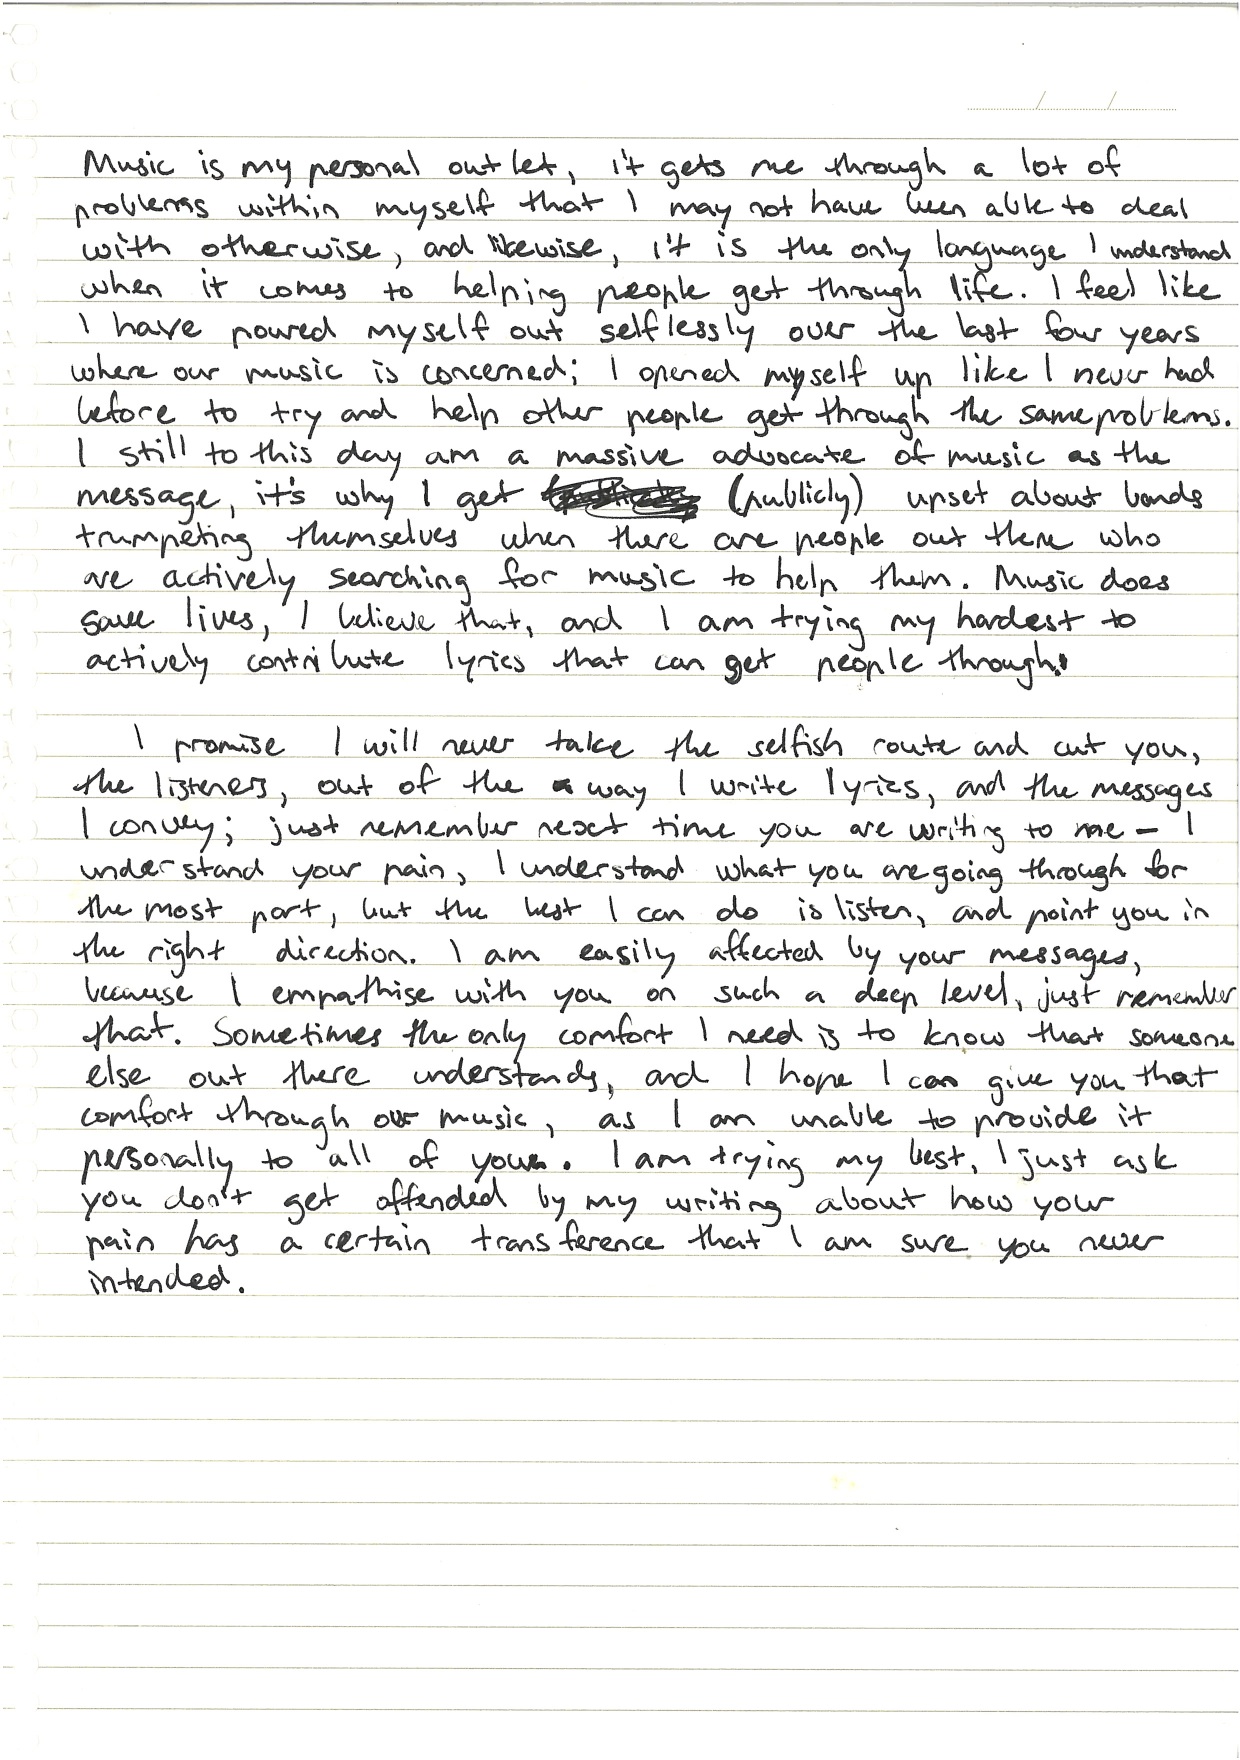 Music is my personal outlet, it gets me through a lot of
problems within myself that I may not have been able to deal
with otherwise, and likewise, it is the only language I understand
when it comes to helping people get through life. I feel like
I have poured myself out selflessly over the last four years
where our music is concerned; I opened myself up like I never had
before to try and help other people get through the same problems.
I still to this day am a massive advocate of music as the
message, it's why I get (publicly) upset about bands
trumpeting themselves when there are people out there who
are actively searching for music to help them. Music does
save lives, I believe that, and I am trying my hardest to
actively contribute lyrics that can get people through.
I promise I will never take the selfish route and cut you,
the listeners, out of the way I write lyrics, and the messages
I convey; just remember next time you are writing to me - I
understand your pain, I understand what you are going through for
the most part, but the best I can do is listen, and point you in
the right direction. I am easily affected by your messages,
because I empathise with you on such a deep level, just remember
that. Sometimes the only comfort I need is to know that someone
else out there understands, and I hope I can give you that
comfort through our music, as I am unable to provide it
personally to all of you. I am trying my best, I just ask
you don't get offended by my writing about how your
pain has a certain transference that I am sure you never
intended.